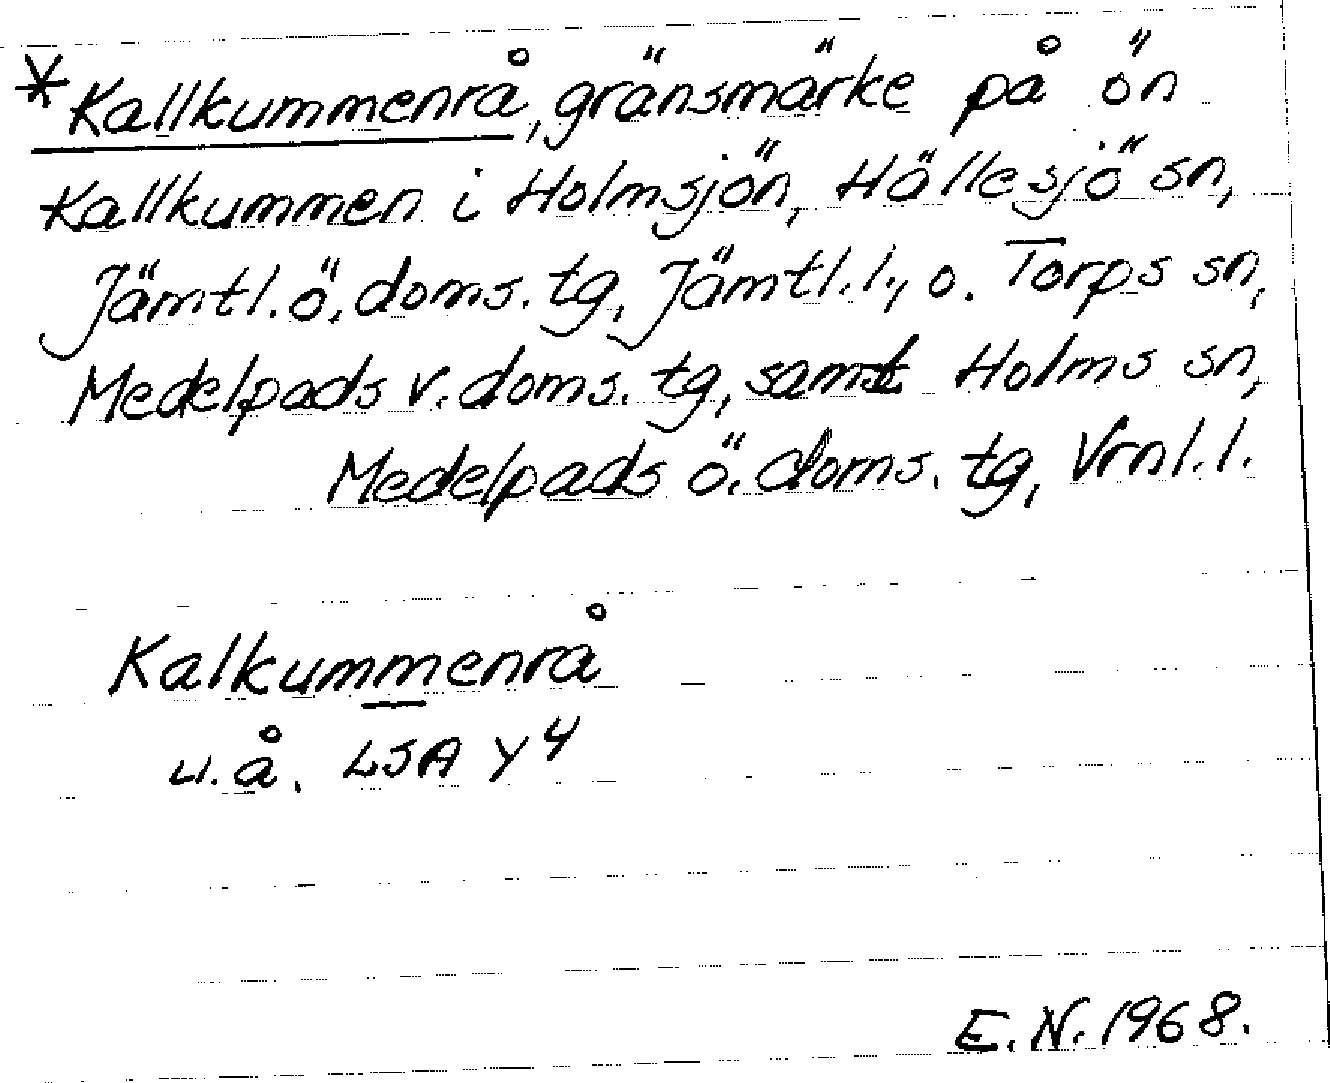 *Kallkummenrå, gränsmärke på ön
Kallkummen i Holmsjön, Hällesjö sn,
Jämtl. ö. doms. tg, Jämtl. l., o. Torps sn,
Medelpads v. doms. tg, samt Holms sn,
Medelpads ö. doms. tg, Vrnl. l.
Kalkummenrå
u.å. LSA Y 4
E. N. 1968.